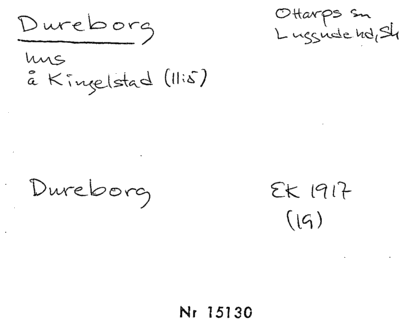 Dureborg
Ottarps sn
Luggude hd, Sk
hus
å Kingelstad (11:5)
Dureborg
EK 1917
(19)
Nr 15130